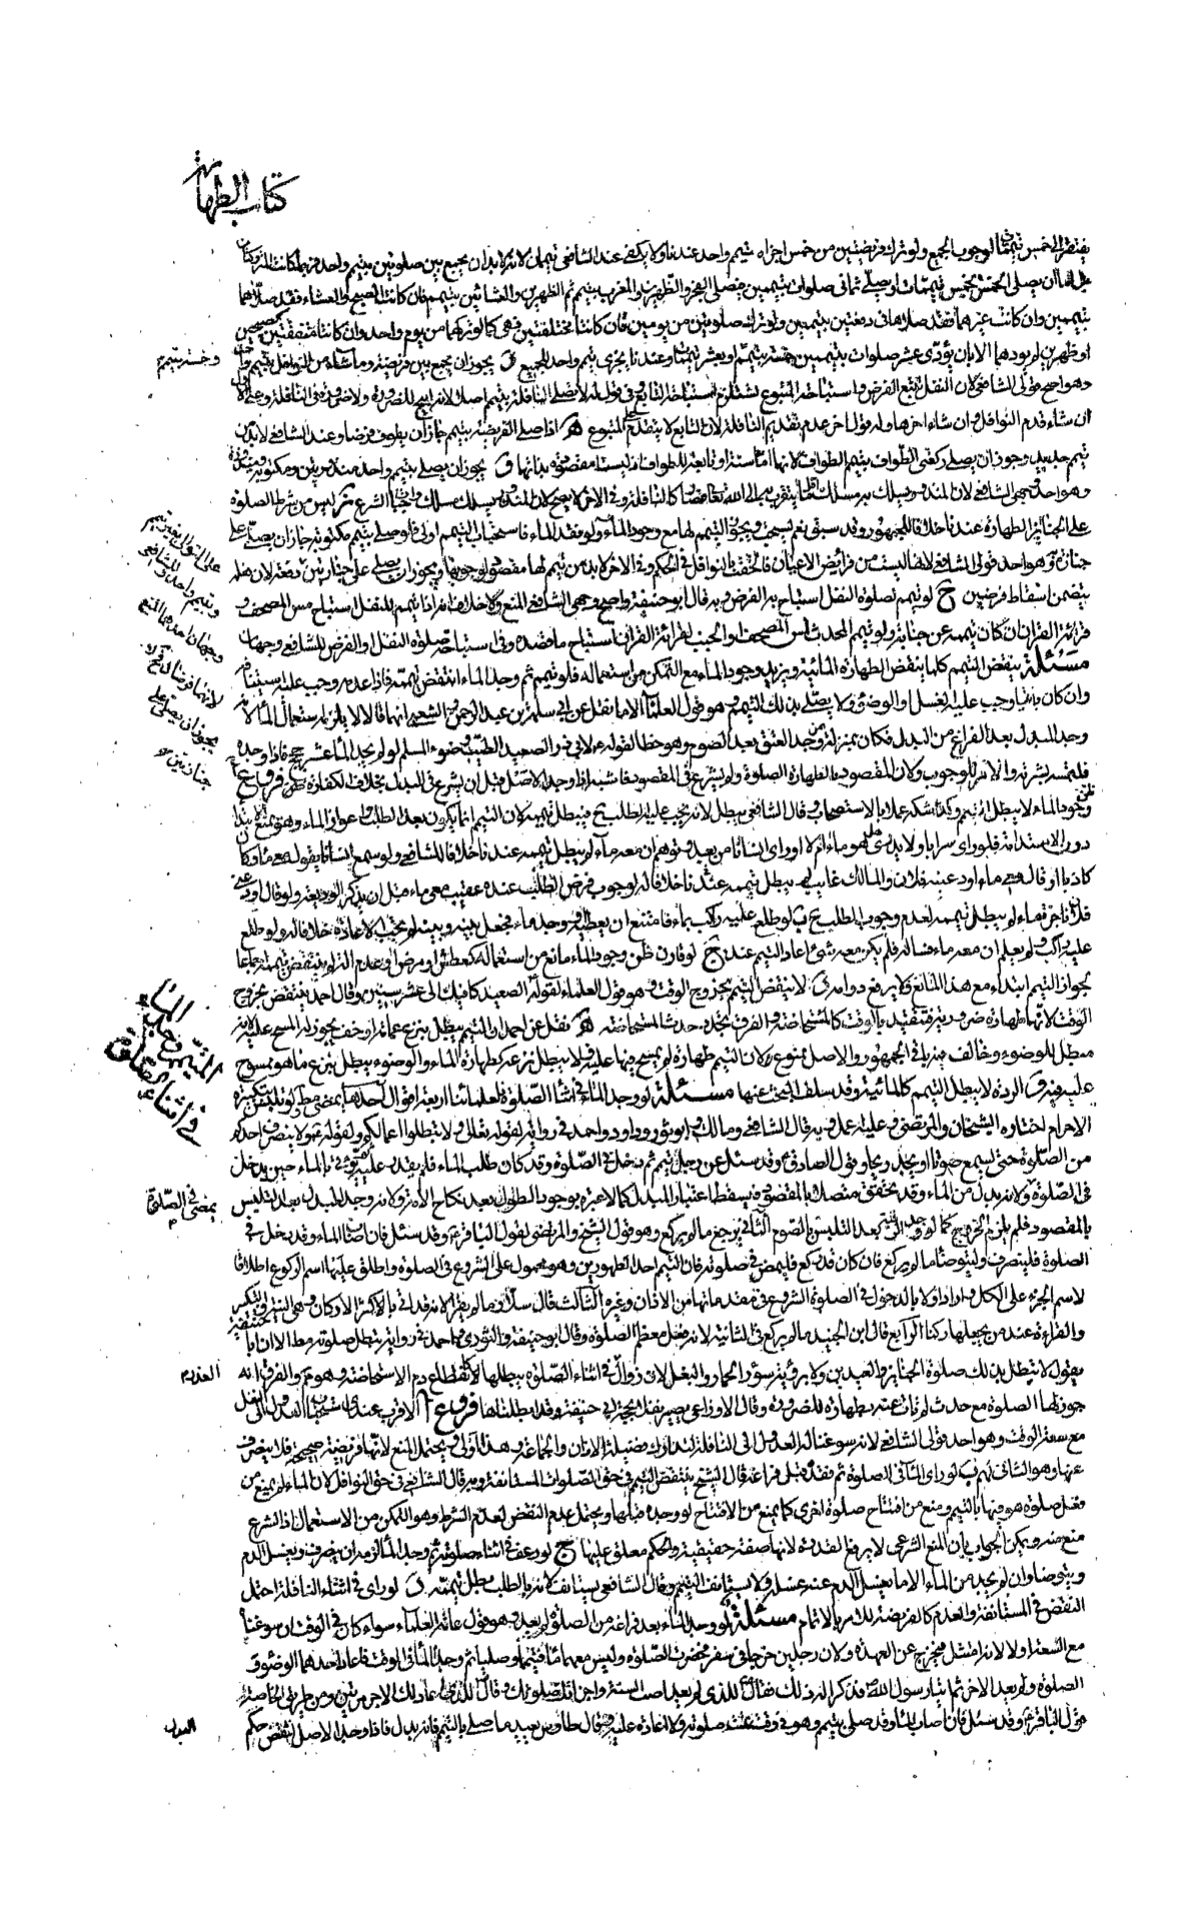 كتاب الطهارة
يفتقر الى خمس تيممات لوجوب الجمع ولو ترك فريضتين من خمس اجزاه بتيمم واحد عندنا ولا يكفى عند الشافعي تيممان لانه لا بد ان يجمع بين صلوتين بتيمم واحد
ان يصلى الخمس بخمس تيممات او يصلى ثمانى صلوات بتيممين فيصلى الفجر والظهرين والمغرب بتيمم ثم الظهرين والعشائين بتيمم فان كانت الصبح والعشاء فقد صلاهما
بتيممين وان كانت غيرهما فقد صلاها فى دفعتين بتيممين ولو ترك صلوتين من يومين فان كانتا مختلفتين فهى كما لو تركهما من يوم واحد وان كانتا متفقتين كصبحين
او ظهرين لم يودهما الا بان يؤدى عشر صلوات بتيممين خمسة بتيمم او بعشر تيممات وعندنا يجزى تيمم واحد للجميع يجوز ان يجمع بين فريضة وما شاء من النوافل بتيمم واحد
وخمسة بتيمم
وهو احد قولى الشافعي لان النفل تتبع الفرض واستباحة المتبوع يستلزم استباحة التابع وفى قول له لا يصلى النافلة بتيمم اصلا لانه ابيح للضرورة ولا ضرورة فى النافلة وعلى الاول
ان شاء قدم النوافل وان شاء اخرها وله قول اخر عدم تقديم النافلة لان التابع لا يتقدم على المتبوع اذا صلى الفريضة بتيمم جاز ان يطوف فرضا وعند الشافعي لا بد من
تيمم جديد وجوز ان يصلى ركعتى الطواف بتيمم الطواف لانها اما سنة او تابعة للطواف اذ ليست مقصودة بذاتها يجوز ان يصلى بتيمم واحد منذورتين ومكتوبة ومنذورة
وهو احد وجهى الشافعي لان المنذور يسلك به مسلك ما يتقرب به الى الله تعالى كالنافلة وفى الاخر لا يصح لان المنذور يسلك به مسلك واجبات الشرع ليس من شرط الصلوة
على الجنائز الطهارة عندنا خلافا للجمهور وقد سبق نعم يستحب ويجوز التيمم لها مع وجود الماء ولو فقد الماء فاستحباب التيمم اولى فلو صلى بتيمم مكتوبة جاز ان يصلى على
جنازة وهو احد قولى الشافعي لانها ليست من فرائض الاعيان فالحقت بالنوافل فى الحكم وفى الاخر لا بد من تيمم لها مقصود لوجوبها ويجوز ان يصلى على جنازتين دفعة لان فعله
يتضمن اسقاط فرضين ج لو تيمم لصلوة النفل استباح به الفرض وبه قال ابو حنيفة واصح وجهى الشافعي المنع ولا خلاف انه اذا تيمم للنفل استباح مس المصحف و
قرائة القران ان كان تيممه عن جنابة ولو تيمم المحدث لمس المصحف او الجنب لقرائة القران استباح ما قصده وفى استباحة صلوة النفل او الفرض للشافعي وجهان
على القول بعد تيمم
وبتيمم واحد وللشافعي
وجهان احدهما المنع
لانهما فرضان
يجوز ان يصلى على
جنازتين
مسئلة ينقض التيمم كلما ينقض الطهارة المائية ويزيد وجود الماء مع التمكن من استعماله فلو تيمم ثم وجد الماء انتقض تيممه فاذا عدمه وجب عليه استينافه
وان كان جنبا وجب عليه الغسل او الوضوء ولا يصلى بذلك التيمم وهو قول العلماء الا ما نقل عن ابى سلمة بن عبد الرحمن والشعبي انهما قالا لا يلزمه استعمال الماء لانه
وجد المبدل بعد الفراغ من البدل فكان بمنزلة من وجد العتق بعد الصوم وهو خطا لقوله لابى ذر الصعيد الطيب وضوء المسلم ولو لم يجد الماء عشر حجج فاذا وجده
فليمسه بشرته والامر للوجوب ولان المقصود بالطهارة الصلوة ولم يشرع فى المقصود فاشبه اذا وجد الاصل قبل ان يشرع فى البدل بخلاف الكفارة فروع
وجود الماء لا يبطل التيمم وكذا شكه عملا بالاستصحاب وقال الشافعي يبطل لانه يجب عليه الطلب فيبطل تيممه لان التيمم انما يكون بعد الطلب
دون الاستدامة فلو راى سرابا ولا يدرى هو ماء ام لا او راى انسانا من بعيد فتوهم ان معه ماء لم يبطل تيممه عندنا خلافا للشافعي ولو سمع انسانا يقول معى ماء وكان
كاذبا او قال معى ماء اودعنيه فلان والمالك غايب لم يبطل تيممه عندنا خلافا له لوجوب فرض الطلب عنده عقيب معى ماء قبل ان يذكر الوديعة ولو قال اودعنى
فلان ماء لم يبطل تيممه لعدم وجوب الطلب ب لو طلع عليه راكب بماء فامتنع ان يعطيه او وجد ماء فحيل بينه وبينه لم يجب الاعادة خلافا له ولو طلع
عليه راكب ولم يعلم ان معه ماء فساله فلم يكن معه شئ اعاد التيمم عنده ج لو قارن ظن وجود الماء مانع من استعماله كعطش او مرض او عدم التراب لم ينتقض تيممه اجماعا
لجواز التيمم ابتداء مع هذا المانع فلا يرفع دوامه لا ينقض التيمم بخروج الوقت وهو قول العلماء لقوله الصعيد كافيك الى عشر سنين وقال احمد ينتقض بخروج
الوقت لانها طهارة ضرورية فتقيد بالوقت كالمستحاضة والفرق تجدد حدث المستحاضة نقل عن احمد ان التيمم يبطل بنزع عمامة او خف يجوز له المسح عليه لانه
مبطل للوضوء وخالف فيه باقى الجمهور والاصل ممنوع ولان التيمم طهارة لم يمسح فيها عليه فلا يبطل بنزعه كطهارة الماء والوضوء يبطل بنزع ما هو ممسوح
عليه فيه الردة لا يبطل التيمم كالمائية وقد سلف البحث عنها مسئلة لو وجد الماء فى اثناء الصلوة فلعلمائنا اربعة اقوال احدها يمضى مطلقا ولو تلبس بتكبيرة
المتيمم وجد الماء
فى اثناء الصلوة
الاحرام اختاره الشيخان والمرتضى وعليه اعمل وبه قال الشافعي ومالك وابو ثور وداود واحمد فى رواية لقوله تعالى ولا تبطلوا اعمالكم ولقوله لا ينصرف احدكم
من الصلوة حتى يسمع صوتا او يجد ريحا وقول الصادق وقد سئل عن رجل تيمم ثم دخل فى الصلوة وقد كان طلب الماء فلم يقدر عليه ثم يؤتى بالماء حين يدخل
فى الصلوة ولانه بدل من الماء وقد تحقق متصلا بالمقصود فسقط اعتبار المبدل كما لا عبرة بوجود الطول بعد نكاح الامة ولانه وجد المبدل بعد التلبس
يمضى فى الصلوة
بالمقصود فلم يلزمه الخروج كما لو وجد الرقبة بعد التلبس بالصوم الثانى يرجع ما لم يركع وهو قول الشيخ والمرتضى لقول الباقر وقد سئل فان اصاب الماء وقد دخل فى
الصلوة فلينصرف وليتوضأ ما لم يركع فان كان قد ركع فليمض فى صلوته فان التيمم احد الطهورين وهو محمول على الشروع فى الصلوة واطلق عليها اسم الركوع اطلاقا
لاسم الجزء على الكل او اراد اولا بالدخول فى الصلوة الشروع فى مقدماتها من الاذان وغيره الثالث قال سلار وما لم يقرأ لانه قد اتى باكثر الاركان وهى النية والتكبير
والقراءة عند من يجعلها ركنا الرابع قال ابن الجنيد ما لم يركع فى الثانية لانه فعل معظم الصلوة وقال ابو حنيفة والثورى واحمد فى رواية يبطل صلوته مطلقا الا ان ابا حنيفة
يقول لا تبطل بذلك صلوة الجنازة والعيدين ولا برؤية سؤر الحمار والبغل لان زواله فى اثناء الصلوة يبطلها كانقطاع دم الاستحاضة وهو مم والفرق انه
العذر
جوز لها الصلوة مع حدث لم تات عنه بطهارة للضرورة وقال الاوزاعى يصير نفلا كقول ابى حنيفة وقد ابطلناها فروع ا الاقرب عندى استحباب العدول الى النفل
مع سعة الوقت وهو احد قولى الشافعي لانه سوغنا له العدول الى النافلة لتدارك فضيلة الاذان والجماعة وهذا اولى ويحتمل المنع لانها فريضة صحيحة فلا ينصرف
عنها وهو الثانى لهم ب لو راى الماء فى الصلوة ثم فقده قبل فراغه قال الشيخ ينتقض التيمم فى حق الصلوات المستانفة وبه قال الشافعي فى حق النوافل لان الماء لم يمنع من
فعل صلوة هو فيها بالتيمم ومنع من افتتاح صلوة اخرى كما يمنع من الافتتاح لو وجده قبلها ويحتمل عدم النقض لعدم الشرط وهو التمكن من الاستعمال اذ الشرع
منع منه ويمكن الجواب بان المنع الشرعى لا يرفع القدرة لانها صفة حقيقية والحكم معلق عليها ج لو رعف فى اثناء صلوته ثم وجد الماء لزمه ان ينصرف ويغسل الدم
ويتوضا وان لم يجد من الماء الا ما يغسل الدم عنه غسله ولا يستانف التيمم وقال الشافعي يستانف لانه بالطلب مبطل تيممه لو راى فى اثناء النافلة احتمل
النقض فى المستانفة والعدم كالفريضة للامر بالاتمام مسئلة لو وجد الماء بعد فراغه من الصلوة لم يعد وهو قول عامة العلماء سواء كان فى الوقت ان سوغنا
مع السعة او لا لانه امتثل فيخرج عن العهدة ولان رجلين خرجا فى سفر فحضرت الصلوة وليس معهما ماء فتيمما وصليا ثم وجدا الماء فى الوقت فاعاد احدهما الوضوء و
الصلوة ولم يعد الاخر ثم اتيا رسول الله فذكرا له ذلك فقال للذى لم يعد اصبت السنة واجزاتك صلوتك وقال للذى اعاد لك الاجر مرتين ومن طريق الخاصة
قول الباقر وقد سئل فان اصاب الماء وقد صلى بتيمم وهو فى وقت تمت صلوته ولا اعادة عليه وقال طاوس يعيد ما صلى بالتيمم فانه بدل فاذا وجد الاصل انتقض حكم
البدل